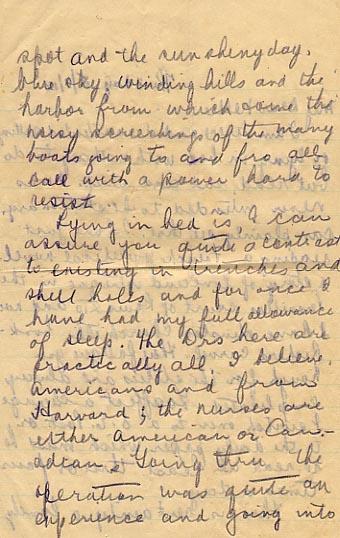 spot and the sun shiny day,
blue sky, winding hills and the
harbor from which come the
noisy screechings of the many
boats going to and fro all
call with a power hard to
resist.
Lying in bed is, I can
assure you, quite a contrast
to existing in trenches and
shell holes and for once I
have had my full allowance
of sleep. The Drs here are
practically all, I believe,
Americans and from
Harvard; the nurses are
either American or Can-
adian. Going thru the
operation was quite an
experience and going into